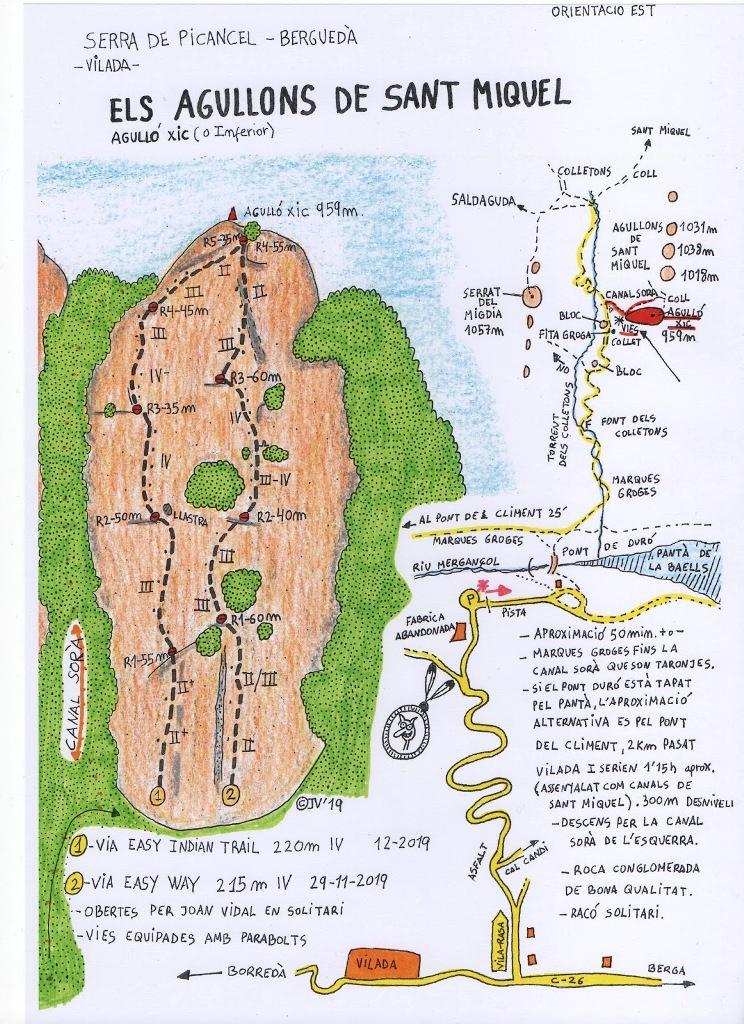 ORIENTACIO EST
SERRA DE PICANCEL - BERGUEDÀ
-VILADA-
ELS AGULLONS DE SANT MIQUEL
AGULLÓ XIC (o Inferior)
AGULLÓ XIC 959m.
R5-35m
R4-55m
II
II
III
R4-45m
III
III
IV-
R3-60m
R3-35m
IV
IV
III-IV
R2-50m
LLASTRA
R2-40m
III
III
III
R1-60m
R1-55m
II+
II/III
II+
II
CANAL SORÀ
1
2
©JV'19
SANT MIQUEL
COLLETONS
COLL
SALDAGUDA
AGULLONS
DE
SANT
MIQUEL
1031m
1038m
1018m
SERRAT
DEL
MIGDIA
1057m
CANAL SORÀ
COLL
BLOC
FITA GROGA
VIES
COLLET
AGULLÓ
XIC
959m
NO
BLOC
TORRENT
DELS COLLETONS
FONT DELS
COLLETONS
MARQUES
GROGES
AL PONT DE S CLIMENT 25'
MARQUES GROGES
PONT DE DURÓ
RIU MERGANÇOL
PANTÀ DE
LA BAELLS
PISTA
FABRICA
ABANDONADA
- APROXIMACIÓ 50min. +o-
- MARQUES GROGES FINS LA
CANAL SORÀ QUE SON TARONJES.
- SI EL PONT DURÓ ESTÀ TAPAT
PEL PANTÀ, L'APROXIMACIÓ
ALTERNATIVA ES PEL PONT
DEL CLIMENT, 2Km PASAT
VILADA I SERIEN 1'15h aprox.
(ASSENYALAT COM CANALS DE
SANT MIQUEL). 300m DESNIVELL
- DESCENS PER LA CANAL
SORÀ DE L'ESQUERRA.
- ROCA CONGLOMERADA
DE BONA QUALITAT.
- RACÓ SOLITARI.
ASFALT
CAL CANDI
VILA-RASA
1 -VIA EASY INDIAN TRAIL 220m IV 12-2019
2 -VIA EASY WAY 215m IV 29-11-2019
-OBERTES PER JOAN VIDAL EN SOLITARI
-VIES EQUIPADES AMB PARABOLTS
BORREDÀ
VILADA
C-26
BERGA